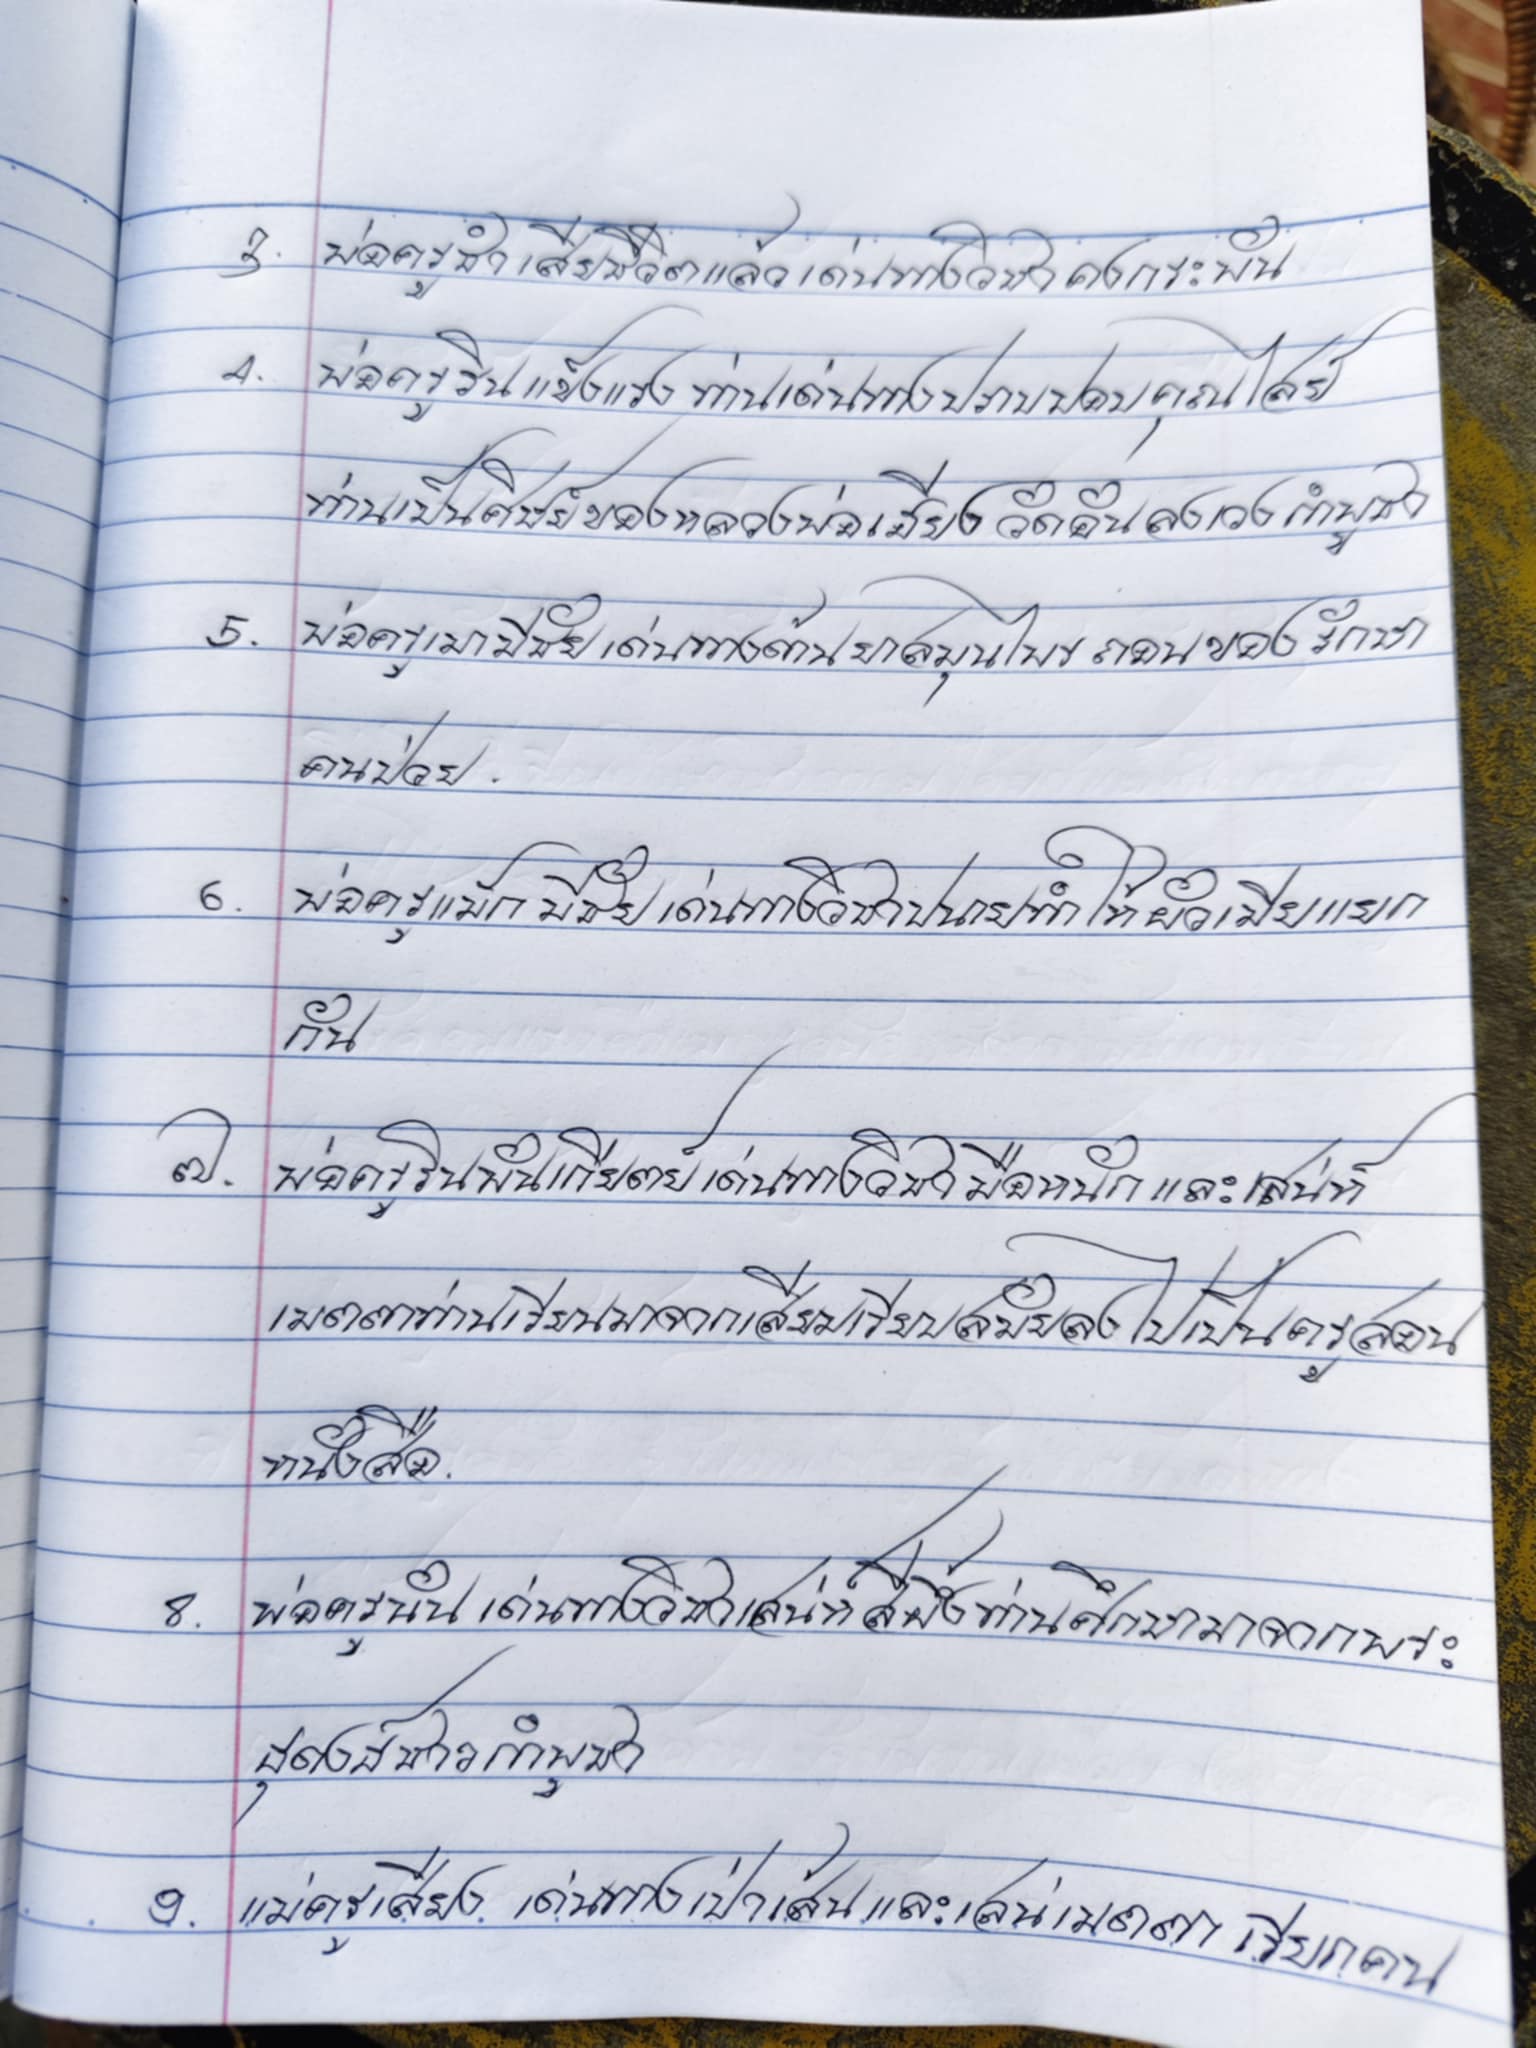 3. พ่อครูชำ เสียชีวิตแล้ว เด่นทางวิชา คงกระพัน
4. พ่อครูริน แข็งแรง ท่านเด่นทางปราบปอบ คุณไสย์
ท่านเป็นศิษย์ของหลวงพ่อเมียง วัดอัน ลงเวง กำพูชา
5. พ่อครูเมา มีชัย เด่นทางด้านยาสมุนไพร ถอนของ รักษา
คนป่วย.
6. พ่อครูแม้ก มีชัย เด่นทางวิชาปนายทำให้ผัวเมียแยก
กัน
7. พ่อครูริน พันเกียตย์ เด่นทางวิชา มือหนัก และเสน่ห์
เมตตาท่านเรียนมาจากเสียมเรียบสมัยลงไปเป็นครูสอน
หนังสือ.
8. พ่อครูนัน เด่นทางวิชาเสน่ห์สีผึ้งท่านศึกษามาจากพระ
ธุดงธ์ชาวกำพูชา
9. แม่ครูเสียง เด่นทางเป่าเส้น และเสน่เมตตา เรียกคน